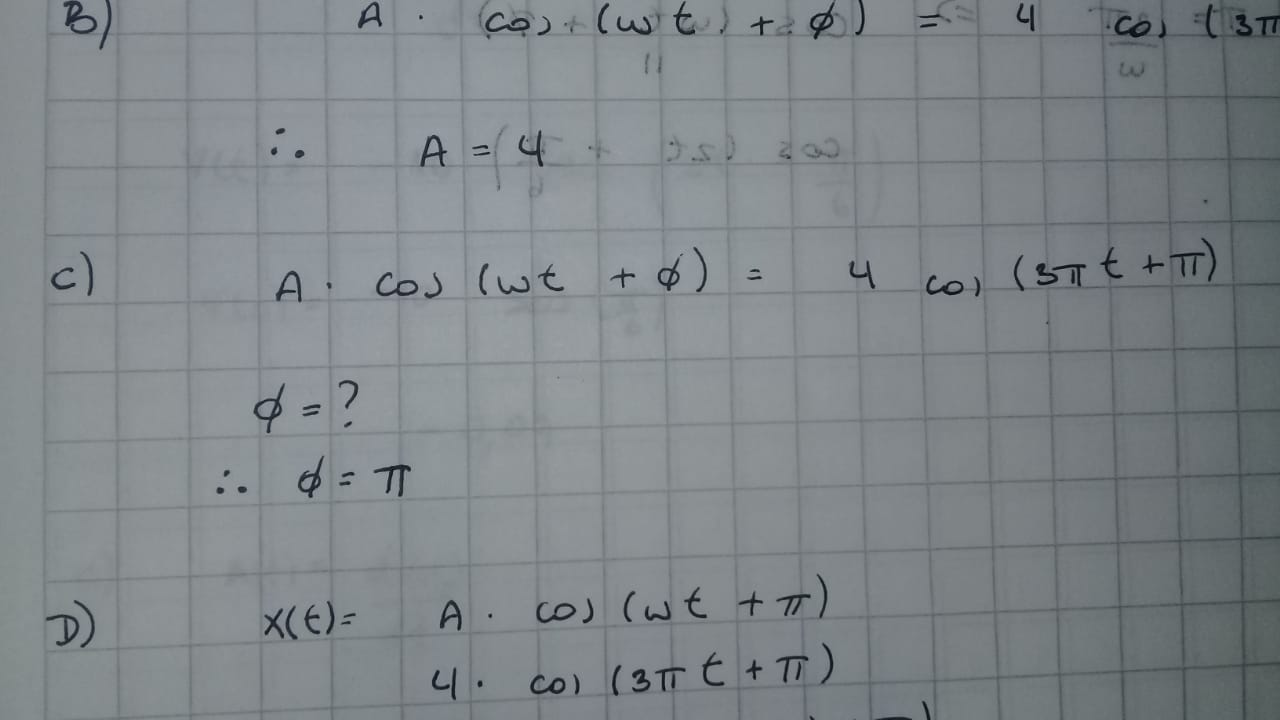 B) A · cos (ωt + ϕ) = 4 cos (3π
∴ A = 4
C) A · cos (ωt + ϕ) = 4 cos (3πt + π)
ϕ = ?
∴ ϕ = π
D) x(t) = A · cos (ωt + π)
4 · cos (3πt + π)